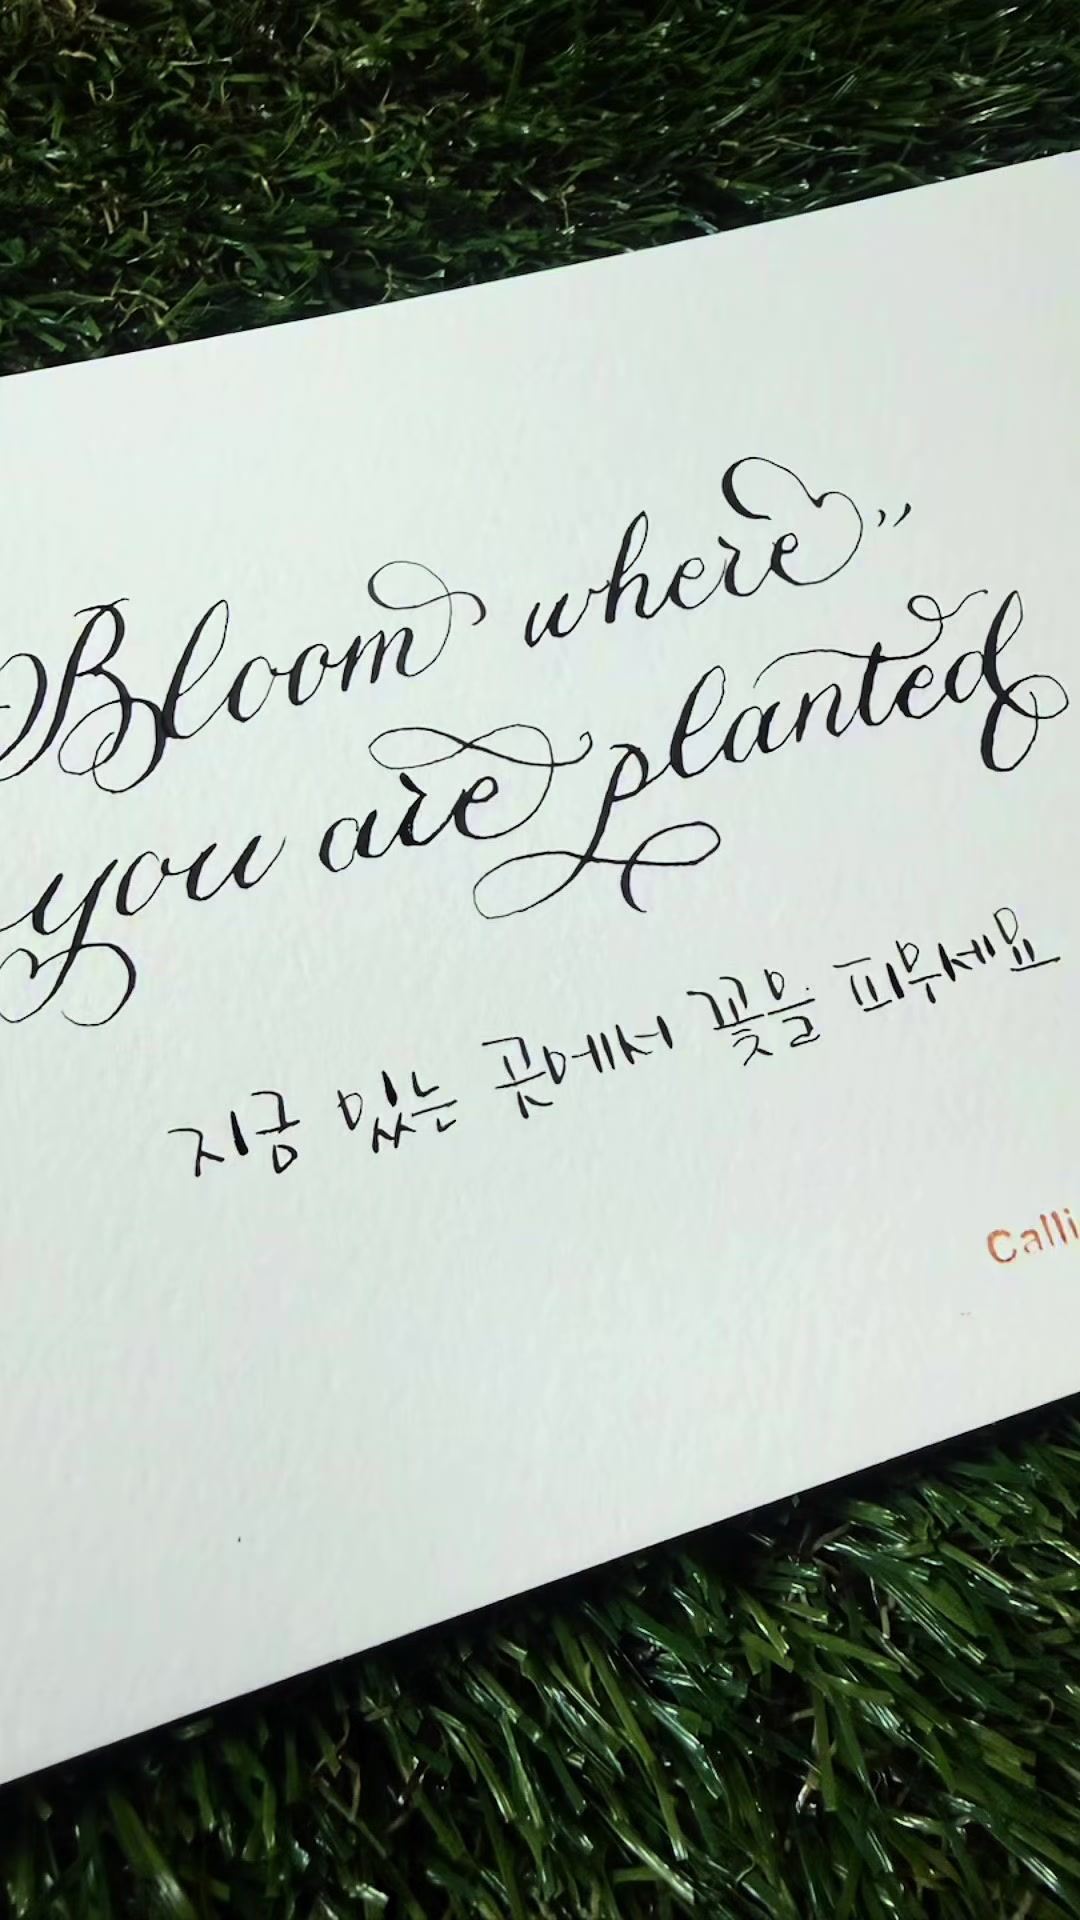 Bloom where
you are planted
지금 있는 곳에서 꽃을 피우세요
Calli